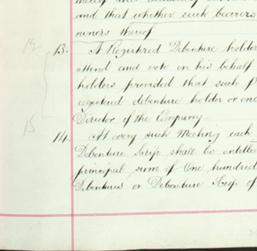 and that whether such bearers
owners thereof
13. A Registered Debenture holder
attend and vote on his behalf
holders provided that such p
registered debenture holder or one
Director of the Company
14. At every such Meeting each
Debenture Scrip shall be entitle
principal sum of One hundred
Debentures or Debenture Scrip of